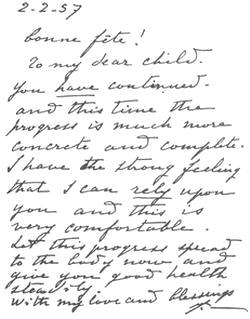 2-2-57
bonne fête!
To my dear child.
You have continued.
and this time the
progress is much more
concrete and complete.
I have the strong feeling
that I can rely upon
you and this is
very comfortable.
Let this progress spread
to the body now and
give you good health
steadily.
With my love and blessings